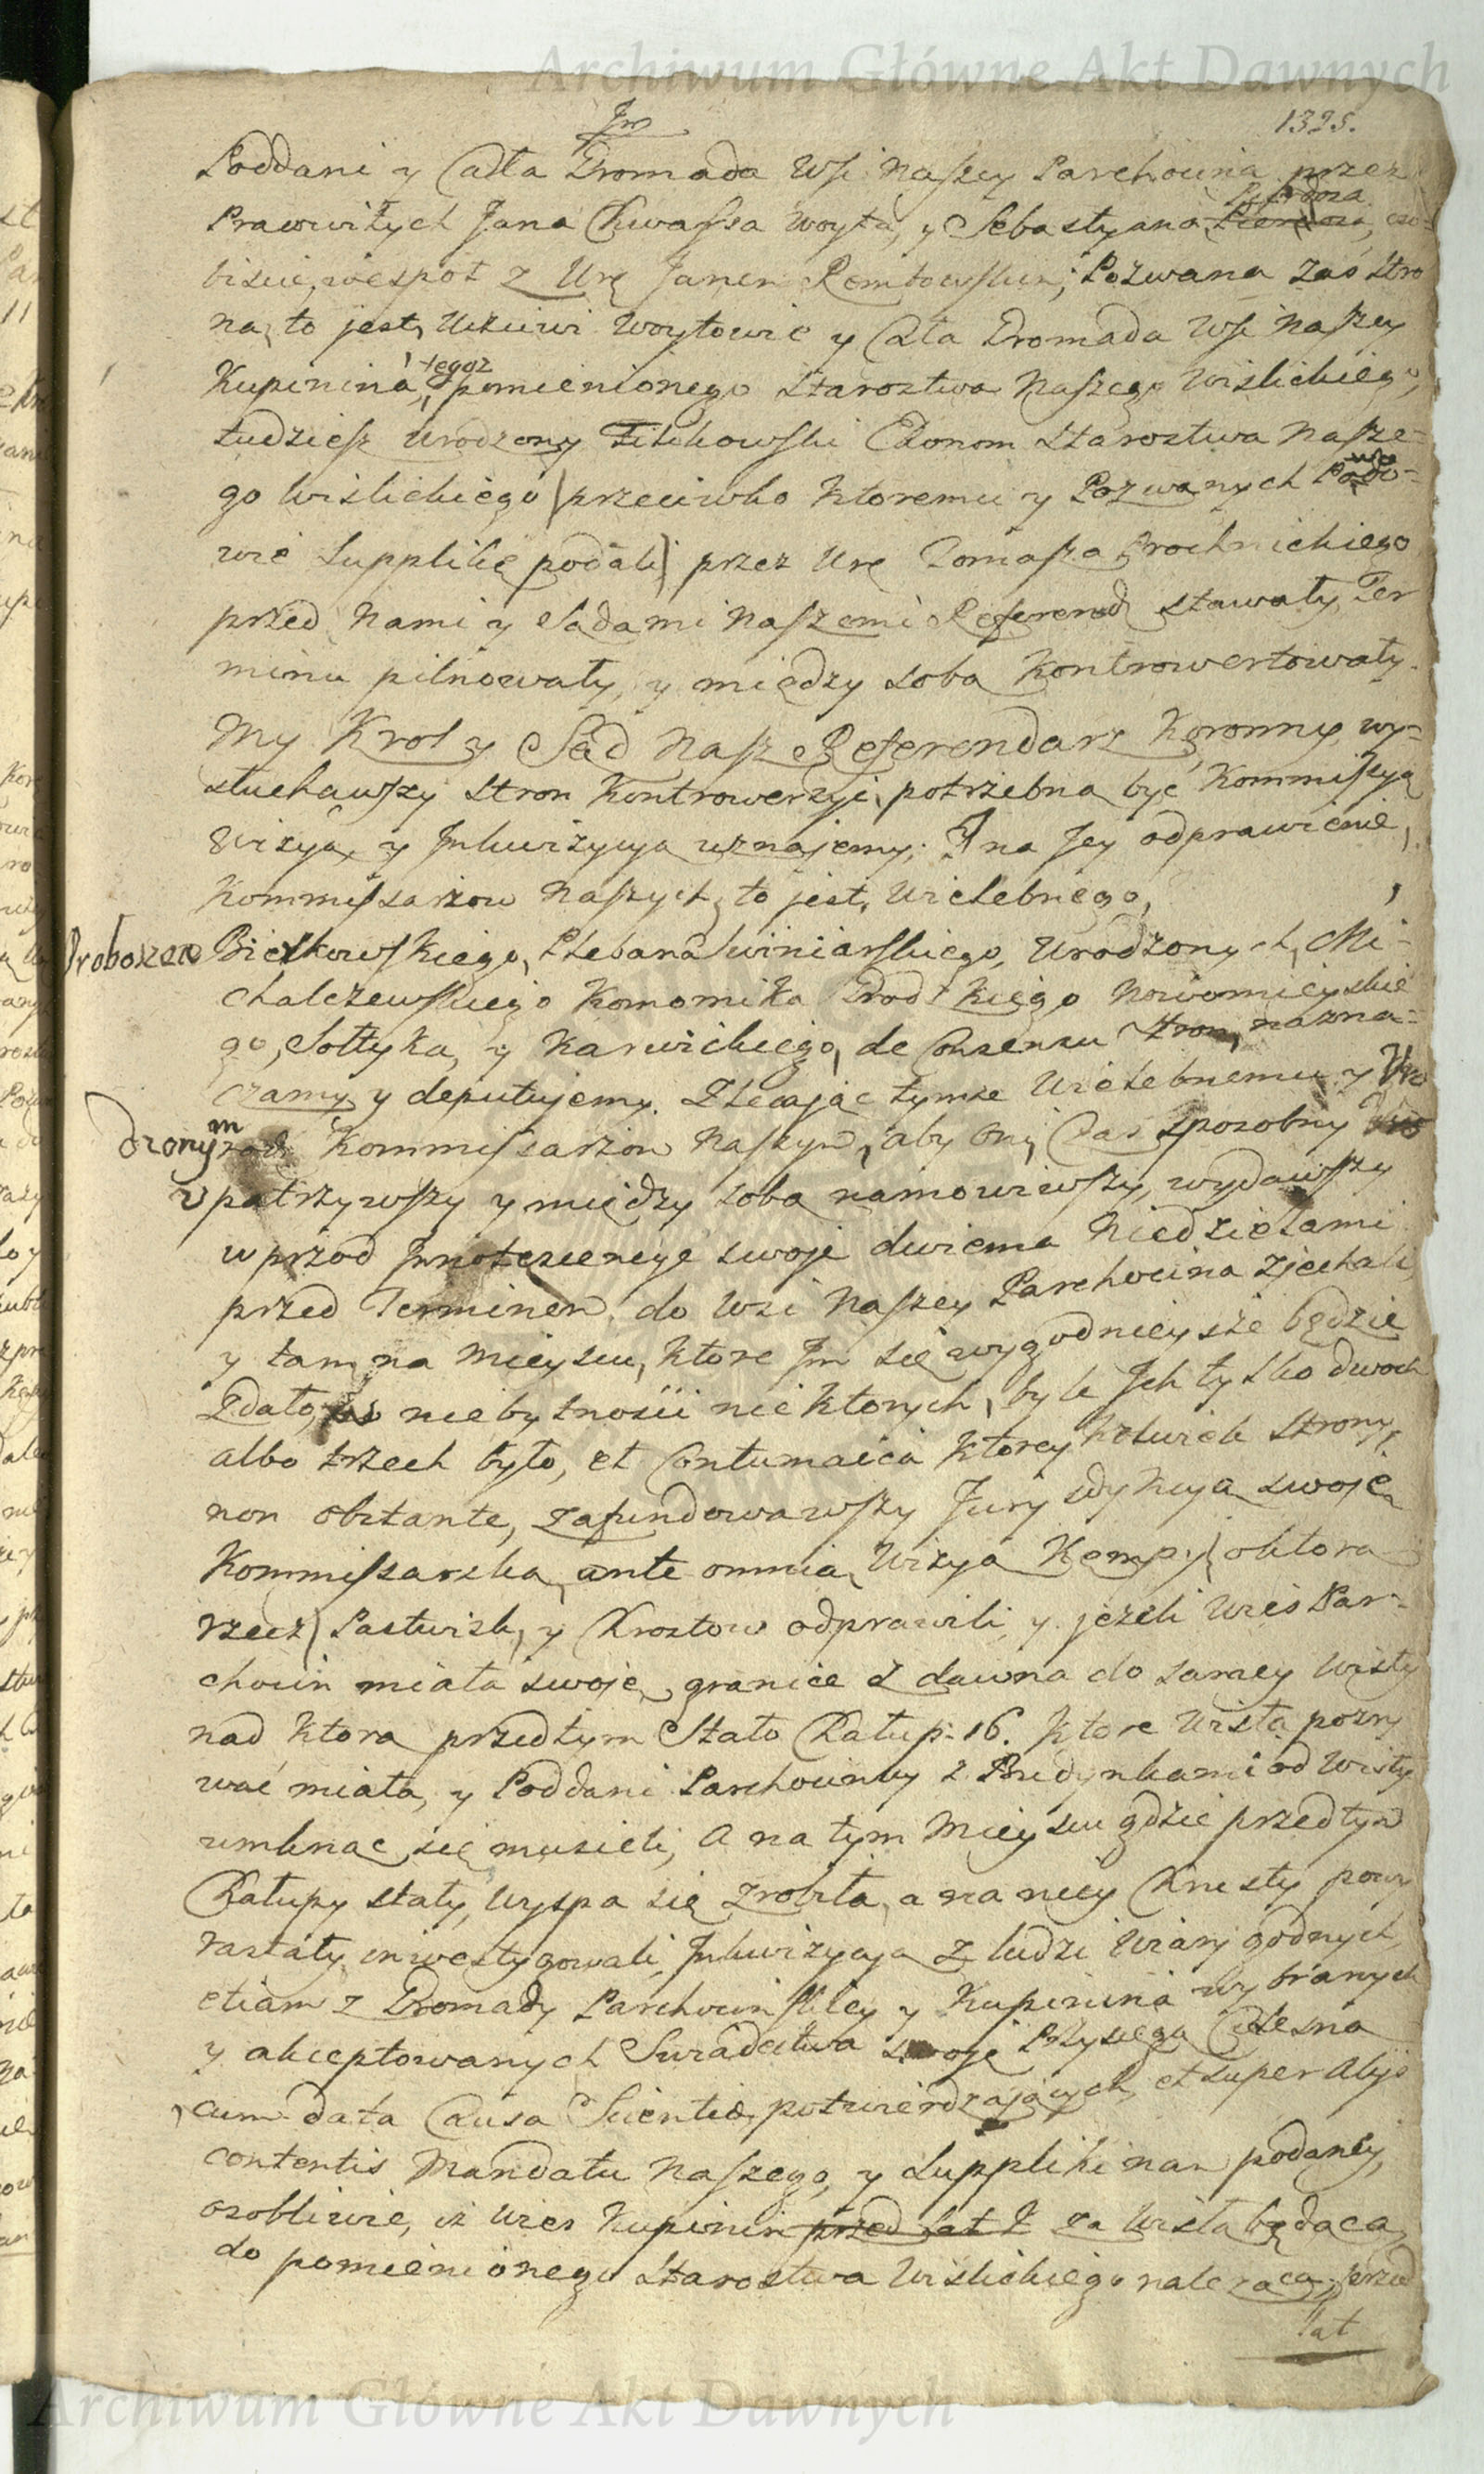 Archiwum Główne Akt Dawnych
1325.
Poddani y Cała Gromada Wsi Naszey Parchocina przez
Prawowitych Jana Kwassa Woyta, y Sebastyana oso-
biscie, wespoł z Ur. Janem Rembowskim; Pozwana zaś Stro
na, to jest, Uczciwi Woytowie y Cała Gromada Wsi Naszey
Kupinina, tegoż pomienionego Starostwa Naszego Wislickiego,
tudziesz Urodzony Ekonom Starostwa Nasze-
go Wislickiego przeciwko ktoremu y Pozwanych Powo-
wie Supplikę podali przez Ur. Tomasza Prochnickiego
przed Nami y Sądami Naszemi Referend stawały, Ter
minu pilnowały, y między sobą kontrowertowały.
My Krol y Sąd Nasz Referendarz Koronny wy-
słuchawszy Stron Kontrowersyi, potrzebna być Kommissyą
Wizyą, y Inkwizycyą uznajemy; I na Jey odprawienie,
Kommissarzow Naszych, to jest, Wielebnego,
Proboszcza Bielkowskiego, Plebana Winiarskiego, Urodzonych, Mi-
chalczewskiego Komornika Grodzkiego Nowomieyskie
go, Sołtyka, y Karwickiego, de Consensu Stron, nazna-
czamy y deputujemy. Zlecając tymże Wielebnemu y Uro
dzonym Kommissarzom Naszym, aby Oni, Czas sposobny
upatrzywszy y między sobą namowiwszy, wydawszy
wprzod Innotescencye swoje dwiema Niedzielami
przed Terminem, do Wsi Naszey Parchocina zjechali,
y tam na mieyscu, ktore Im się wygodnieysze będzie
Zdało, niebytnosci niektorych, byle Ich tylko dwoch
albo trzech było, et Contumacia ktorey kolwiek Strony,
non obstante, zafundowawszy Jurysdykcyą swoję
Kommissarską, ante omnia, Wizyą Kempy, o ktora
rzecz Pastwisk, y Chrostow odprawili, y jeżeli Wieś Par-
chocin miała swoje granice z dawna do samey Wisły
nad ktora przedtym Stało Chałup: 16. ktore Wisła pozry
wać miała, y Poddani Parchoccy z Budynkami od Wisły
umknąć się musieli, a na tym Mieyscu gdzie przedtym
Chałupy stały, Wyspa się zrobiła, a na niey Chrusty powy
rastały, inwestygowali, Inkwizycyą z ludzi Wiary godnych,
etiam z Gromady Parchocinskiey y Kupinina wybranych
y akceptowanych Swiadectwa swoje Przysięgą Cielesną
cum data Causa Scientiæ, potwierdzających, et super Alijs
contentis Mandatu Naszego, y Suppliki nam podaney,
osobliwie, iż Wies Kupinin przed lat za Wisłą będąca,
do pomienionego Starostwa Wislickiego należąca, przed
lat
Archiwum Główne Akt Dawnych